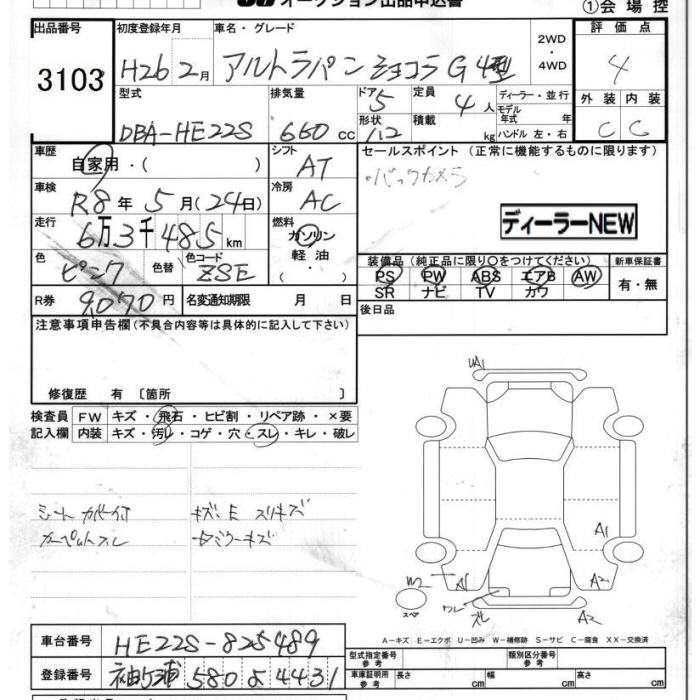 オークション出品申込書
①会場控
出品番号 3103
初度登録年月 H26 2月
車名・グレード アルトラパン ショコラ G 4型
2WD・4WD
評価点 4
外装 C 内装 C
型式 DBA-HE22S
排気量 660 cc
ドア 5 形状
定員 4人 積載 kg
ディーラー・並行
モデル年式 年
ハンドル 左・右
車歴 自家用・( )
シフト AT
セールスポイント (正常に機能するものに限ります)
・バックカメラ
ディーラーNEW
車検 R8年 5月(24日)
冷房 AC
走行 6万3千485km
燃料 ガソリン 軽油・( )
色 ピンク 色替 色コード ZSE
装備品 (純正品に限り〇をつけてください)
PS PW ABS エアB AW
SR ナビ TV カワ
新車保証書 有・無
R券 9,070円
名変通知期限 月 日
後日品
注意事項申告欄(不具合内容等は具体的に記入して下さい)
修復歴 有〔箇所 〕
検査員記入欄
FW キズ・飛石・ヒビ割・リペア跡・×要
内装 キズ・汚レ・コゲ・穴・スレ・キレ・破レ
シートカバー付 キズ・E スリキズ
カーペットスレ
UA1
A1
A2
A2
W2
スペア
A−キズ E−エクボ U−凹み W−補修跡 S−サビ C−腐食 XX−交換済
車台番号 HE22S-825489
型式指定番号 参考 類別区分番号 参考
登録番号 袖ヶ浦 580 よ 4431
車庫証明用 参考 長さ cm 幅 cm 高さ cm